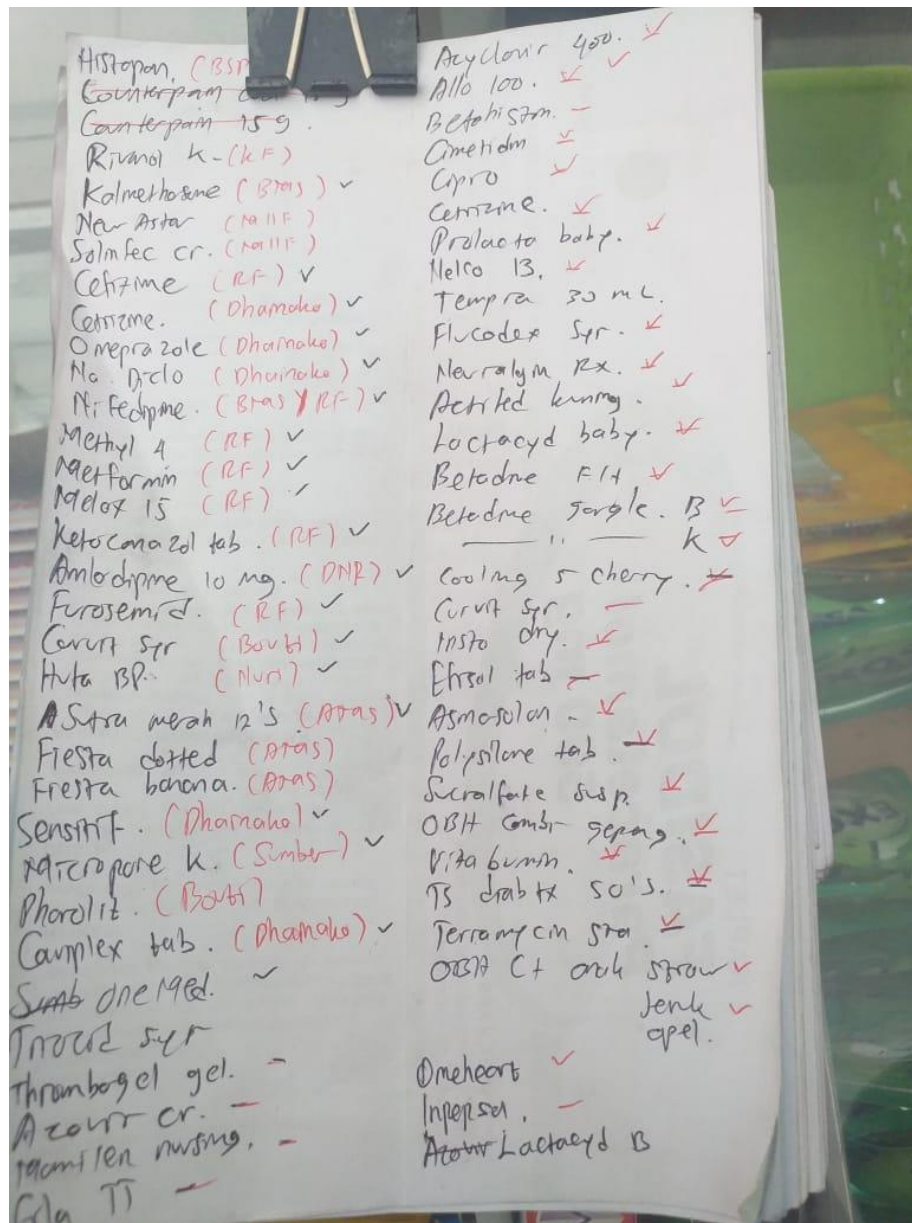 Histopan, (BSP
Counterpain
Counterpain 15 g.
Rivanol K-(KF)
Kalmethasone (Bras) ✓
New Astar (Mallf)
Solinfec cr. (Mallf)
Cefixime (RF) ✓
Cetirizine. (Dhamako) ✓
Omeprazole (Dhamako) ✓
Na. Diclo (Dhamako) ✓
Nifedipine. (Bras / RF) ✓
Methyl 4 (RF) ✓
Metformin (RF) ✓
Melox 15 (RF) ✓
Ketoconazol tab. (RF) ✓
Amlodipine 10 mg. (DNR) ✓
Furosemid. (RF) ✓
Curvit syr ✓
Hufa BP. ✓
Sutra merah 12's (Atras) ✓
Fiesta dotted (Atras)
Fiesta banana. (Atras)
Sensitif. (Dhamako) ✓
Micropore K. (Sumber) ✓
Pharolit.
Caviplex tab. (Dhamako) ✓
Sumb One Med. ✓
syr
Thrombogel gel. -
Azovir cr. -
Mamilen nursing. -
TT -
Acyclovir 400. ✓
Allo 100. ✓ ✓
Betahistin. -
Cimetidin ✓
Cipro ✓
Cetirizine. ✓
Prolacta baby. ✓
Nelco B. ✓
Tempra 30 mL.
Flucodex syr. ✓
Neuralgin RX. ✓
Actifed kuning. ✓
Lactacyd baby. ✓
Betadine ✓
Betadine gargle. B ✓
— " — K ✓
Cooling 5 cherry. ✓
Curvit syr. -
Insto dry. ✓
Efisol tab -
Asmasolon - ✓
Polysilane tab. ✓
Sucralfate susp. ✓
OBH Combi ✓
Vita bumin. ✓
50's. ✓
Terramycin ✓
OBH C+ anak straw ✓
Jeruk ✓
apel.
Oneheart ✓
Inpepsa. -
Azovir Lactacyd B